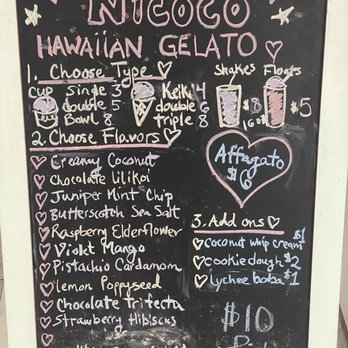 NICOCO
HAWAIIAN GELATO
1. Choose Type
cup single 3
double 5
Bowl 8
Keiki 4
double 6
triple 8
Shakes Floats
$8
16oz
$5
2. Choose Flavors
Creamy Coconut
Chocolate Lilikoi
Juniper Mint Chip
Butterscotch Sea Salt
Raspberry Elderflower
Violet Mango
Pistachio Cardamom
Lemon Poppyseed
Chocolate Trifecta
Strawberry Hibiscus
Affagato
$6
3. Add ons
Coconut whip cream $1
cookie dough $2
lychee boba $1
$10